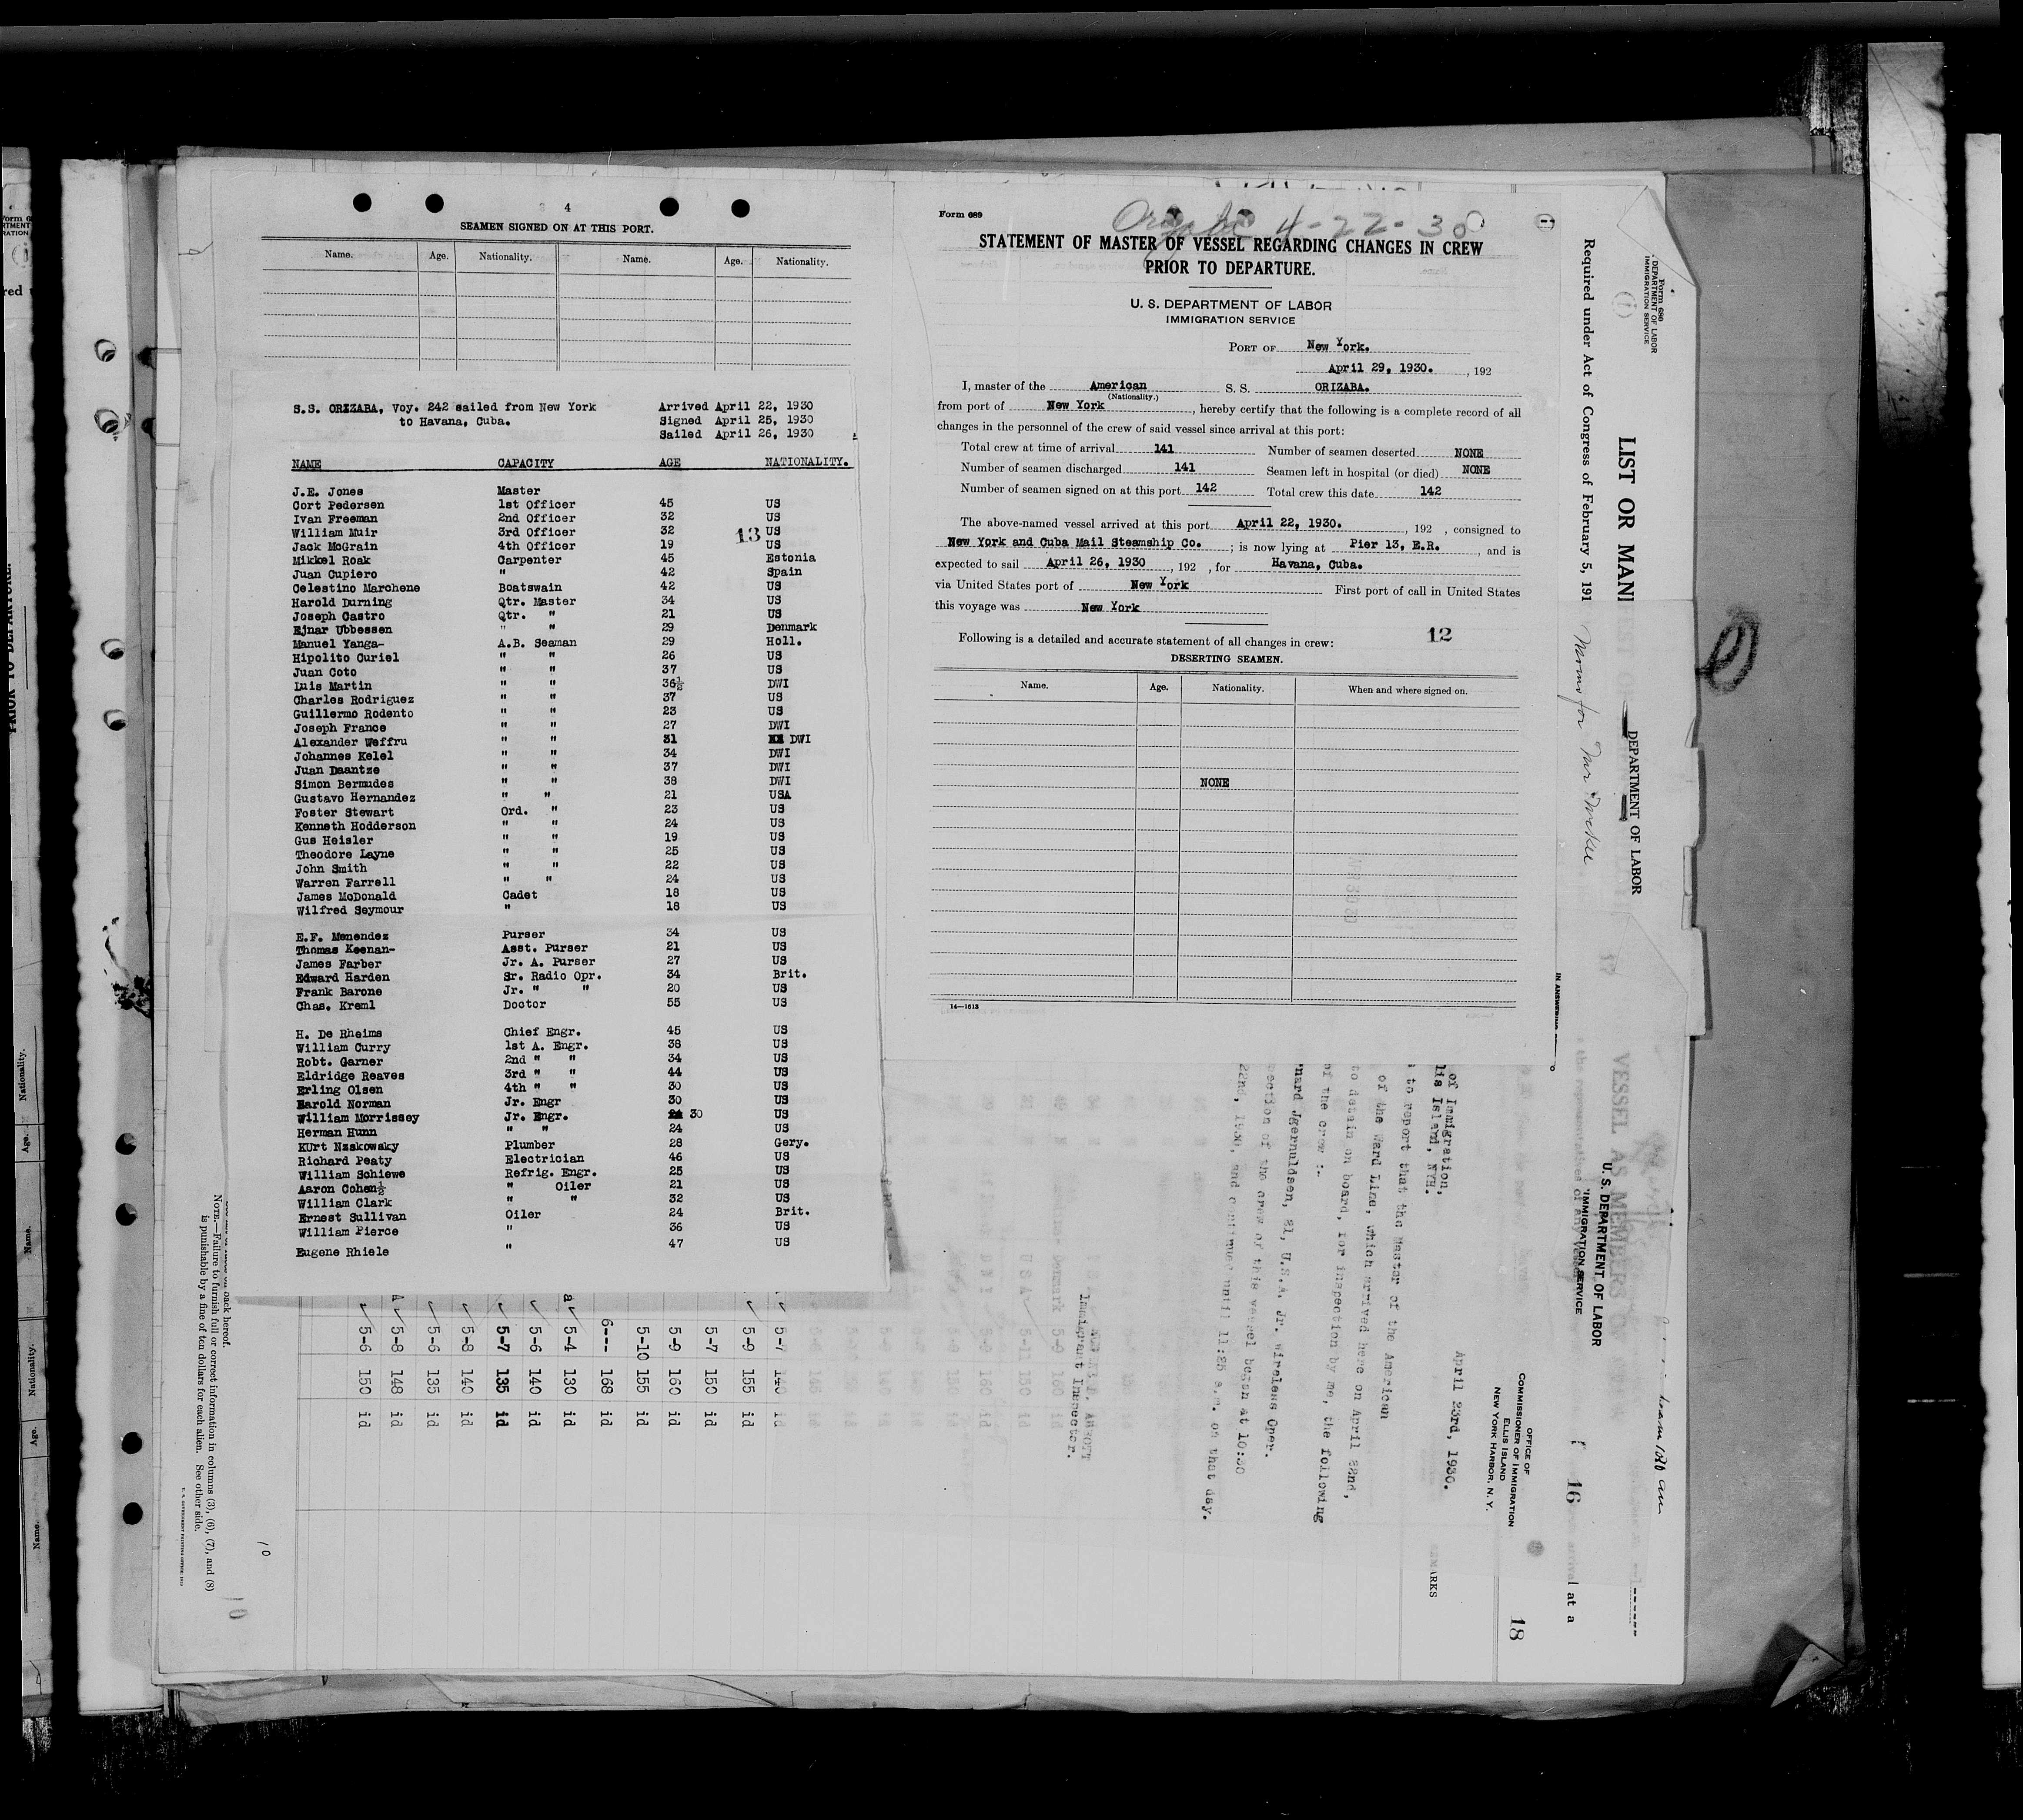 4
SEAMEN SIGNED ON AT THIS PORT.
Name. Age. Nationality. Name. Age. Nationality.
S.S. ORIZABA, Voy. 242 sailed from New York Arrived April 22, 1930
to Havana, Cuba. Signed April 25, 1930
Sailed April 26, 1930
NAME CAPACITY AGE NATIONALITY.
J.E. Jones Master
Cort Pedersen 1st Officer 45 US
Ivan Freeman 2nd Officer 32 US
William Muir 3rd Officer 32 US
13
Jack McGrain 4th Officer 19 US
Mikkel Roak Carpenter 45 Estonia
Juan Cupiero " 42 Spain
Celestino Marchene Boatswain 42 US
Harold Durning Qtr. Master 34 US
Joseph Castro Qtr. " 21 US
Ejnar Ubbessen " " 29 Denmark
Manuel Yanga- A.B. Seaman 29 Holl.
Hipolito Curiel " " 26 US
Juan Coto " " 37 US
Luis Martin " " 36½ DWI
Charles Rodriguez " " 37 US
Guillermo Rodento " " 23 US
Joseph France " " 27 DWI
Alexander Weffru " " 31 DWI
Johannes Kelel " " 34 DWI
Juan Daantze " " 37 DWI
Simon Bermudes " " 38 DWI
Gustavo Hernandez " " 21 USA
Foster Stewart Ord. " 23 US
Kenneth Hodderson " " 24 US
Gus Heisler " " 19 US
Theodore Layne " " 25 US
John Smith " " 22 US
Warren Farrell " " 24 US
James McDonald Cadet 18 US
Wilfred Seymour " 18 US
E.F. Menendez Purser 34 US
Thomas Keenan- Asst. Purser 21 US
James Farber Jr. A. Purser 27 US
Edward Harden Sr. Radio Opr. 34 Brit.
Frank Barone Jr. " " 20 US
Chas. Kreml Doctor 55 US
H. De Rheims Chief Engr. 45 US
William Curry 1st A. Engr. 38 US
Robt. Garner 2nd " " 34 US
Eldridge Reaves 3rd " " 44 US
Erling Olsen 4th " " 30 US
Harold Norman Jr. Engr 30 US
William Morrissey Jr. Engr. 30 US
Herman Hunn " " 24 US
KUrt Nzskowsky Plumber 28 Gery.
Richard Peaty Electrician 46 US
William Schiewe Refrig. Engr. 25 US
Aaron Cohen½ " Oiler 21 US
William Clark " " 32 US
Ernest Sullivan Oiler 24 Brit.
William Pierce " 36 US
Eugene Rhiele " 47 US
Form 689
Orizaba 4-22-30
STATEMENT OF MASTER OF VESSEL REGARDING CHANGES IN CREW
PRIOR TO DEPARTURE.
U. S. DEPARTMENT OF LABOR
IMMIGRATION SERVICE
PORT OF New York.
April 29, 1930. , 192
I, master of the American S. S. ORIZABA.
(Nationality.)
from port of New York , hereby certify that the following is a complete record of all
changes in the personnel of the crew of said vessel since arrival at this port:
Total crew at time of arrival 141 Number of seamen deserted NONE
Number of seamen discharged 141 Seamen left in hospital (or died) NONE
Number of seamen signed on at this port 142 Total crew this date 142
The above-named vessel arrived at this port April 22, 1930. , 192 , consigned to
New York and Cuba Mail Steamship Co. ; is now lying at Pier 13, E.R. , and is
expected to sail April 26, 1930 , 192 , for Havana, Cuba.
via United States port of New York First port of call in United States
this voyage was New York
12
Following is a detailed and accurate statement of all changes in crew:
DESERTING SEAMEN.
Name. Age. Nationality. When and where signed on.
NONE
14—1613
Form 689
DEPARTMENT OF LABOR
IMMIGRATION SERVICE
LIST OR MANI
Required under Act of Congress of February 5, 191
DEPARTMENT OF LABOR
VESSEL AS MEMBERS OF
U. S. DEPARTMENT OF LABOR
IMMIGRATION SERVICE
OFFICE OF
COMMISSIONER OF IMMIGRATION
ELLIS ISLAND
NEW YORK HARBOR, N. Y.
16
18
at a
April 23rd, 1930.
of Immigration,
lis Island, NYH.
to report that the Master of the American
of the Ward Line, which arrived here on April 22nd,
to detain on board, for inspection by me, the following
of the crew :-
nard Jgernuldsen, 21, U.S.A. Jr. Wireless Oper.
ection of the crew of this vessel began at 10:30
22nd, 1930, and continued until 11:25 a.m. on that day.
Immigrant Inspector.
5-7 140 id
5-9 155 id
5-7 150 id
5-9 160 id
5-10 155 id
6-- 168 id
5-4 130 id
5-6 140 id
5-7 135 id
5-8 140 id
5-6 135 id
5-8 148 id
5-6 150 id
back hereof.
NOTE.—Failure to furnish full or correct information in columns (3), (6), (7), and (8)
is punishable by a fine of ten dollars for each alien. See other side.
10
10
Nationality.
Age.
Name.
Nationality.
Age.
Name.